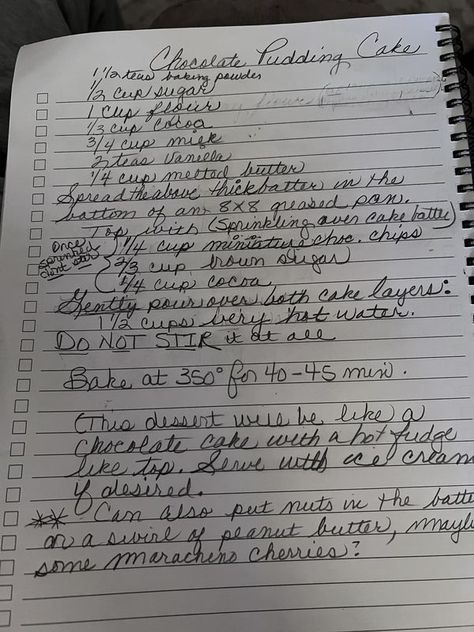 Chocolate Pudding Cake
1 1/2 teas baking powder
1/2 cup sugar
1 cup flour
1/3 cup cocoa
3/4 cup milk
2 teas vanilla
1/4 cup melted butter
Spread the above thick batter in the
bottom of an 8x8 greased pan.
Top with (Sprinkling over cake batter)
Once
sprinkled
dont stir
1/4 cup miniature choc. chips
2/3 cup brown sugar
1/4 cup cocoa
Gently pour over both cake layers:
1 1/2 cups very hot water.
DO NOT STIR it at all
Bake at 350° for 40-45 min.
(This dessert will be like a
chocolate cake with a hot fudge
like top. Serve with ice cream
if desired.
** Can also put nuts in the batte
or a swirl of peanut butter, maybe
some marachino cherries?